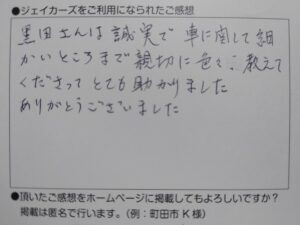 ●ジェイカーズをご利用になられたご感想
黒田さんは誠実で車に関して細
かいところまで親切に色々教えて
くださってとても助かりました
ありがとうございました
●頂いたご感想をホームページに掲載してもよろしいですか？
掲載は匿名で行います。（例：町田市 K 様）